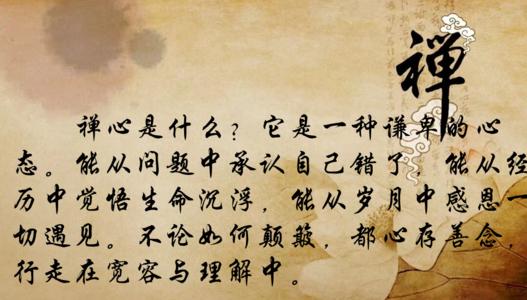 禅
禅心是什么？它是一种谦卑的心
态。能从问题中承认自己错了，能从经
历中觉悟生命沉浮，能从岁月中感恩一
切遇见。不论如何颠簸，都心存善念，
行走在宽容与理解中。